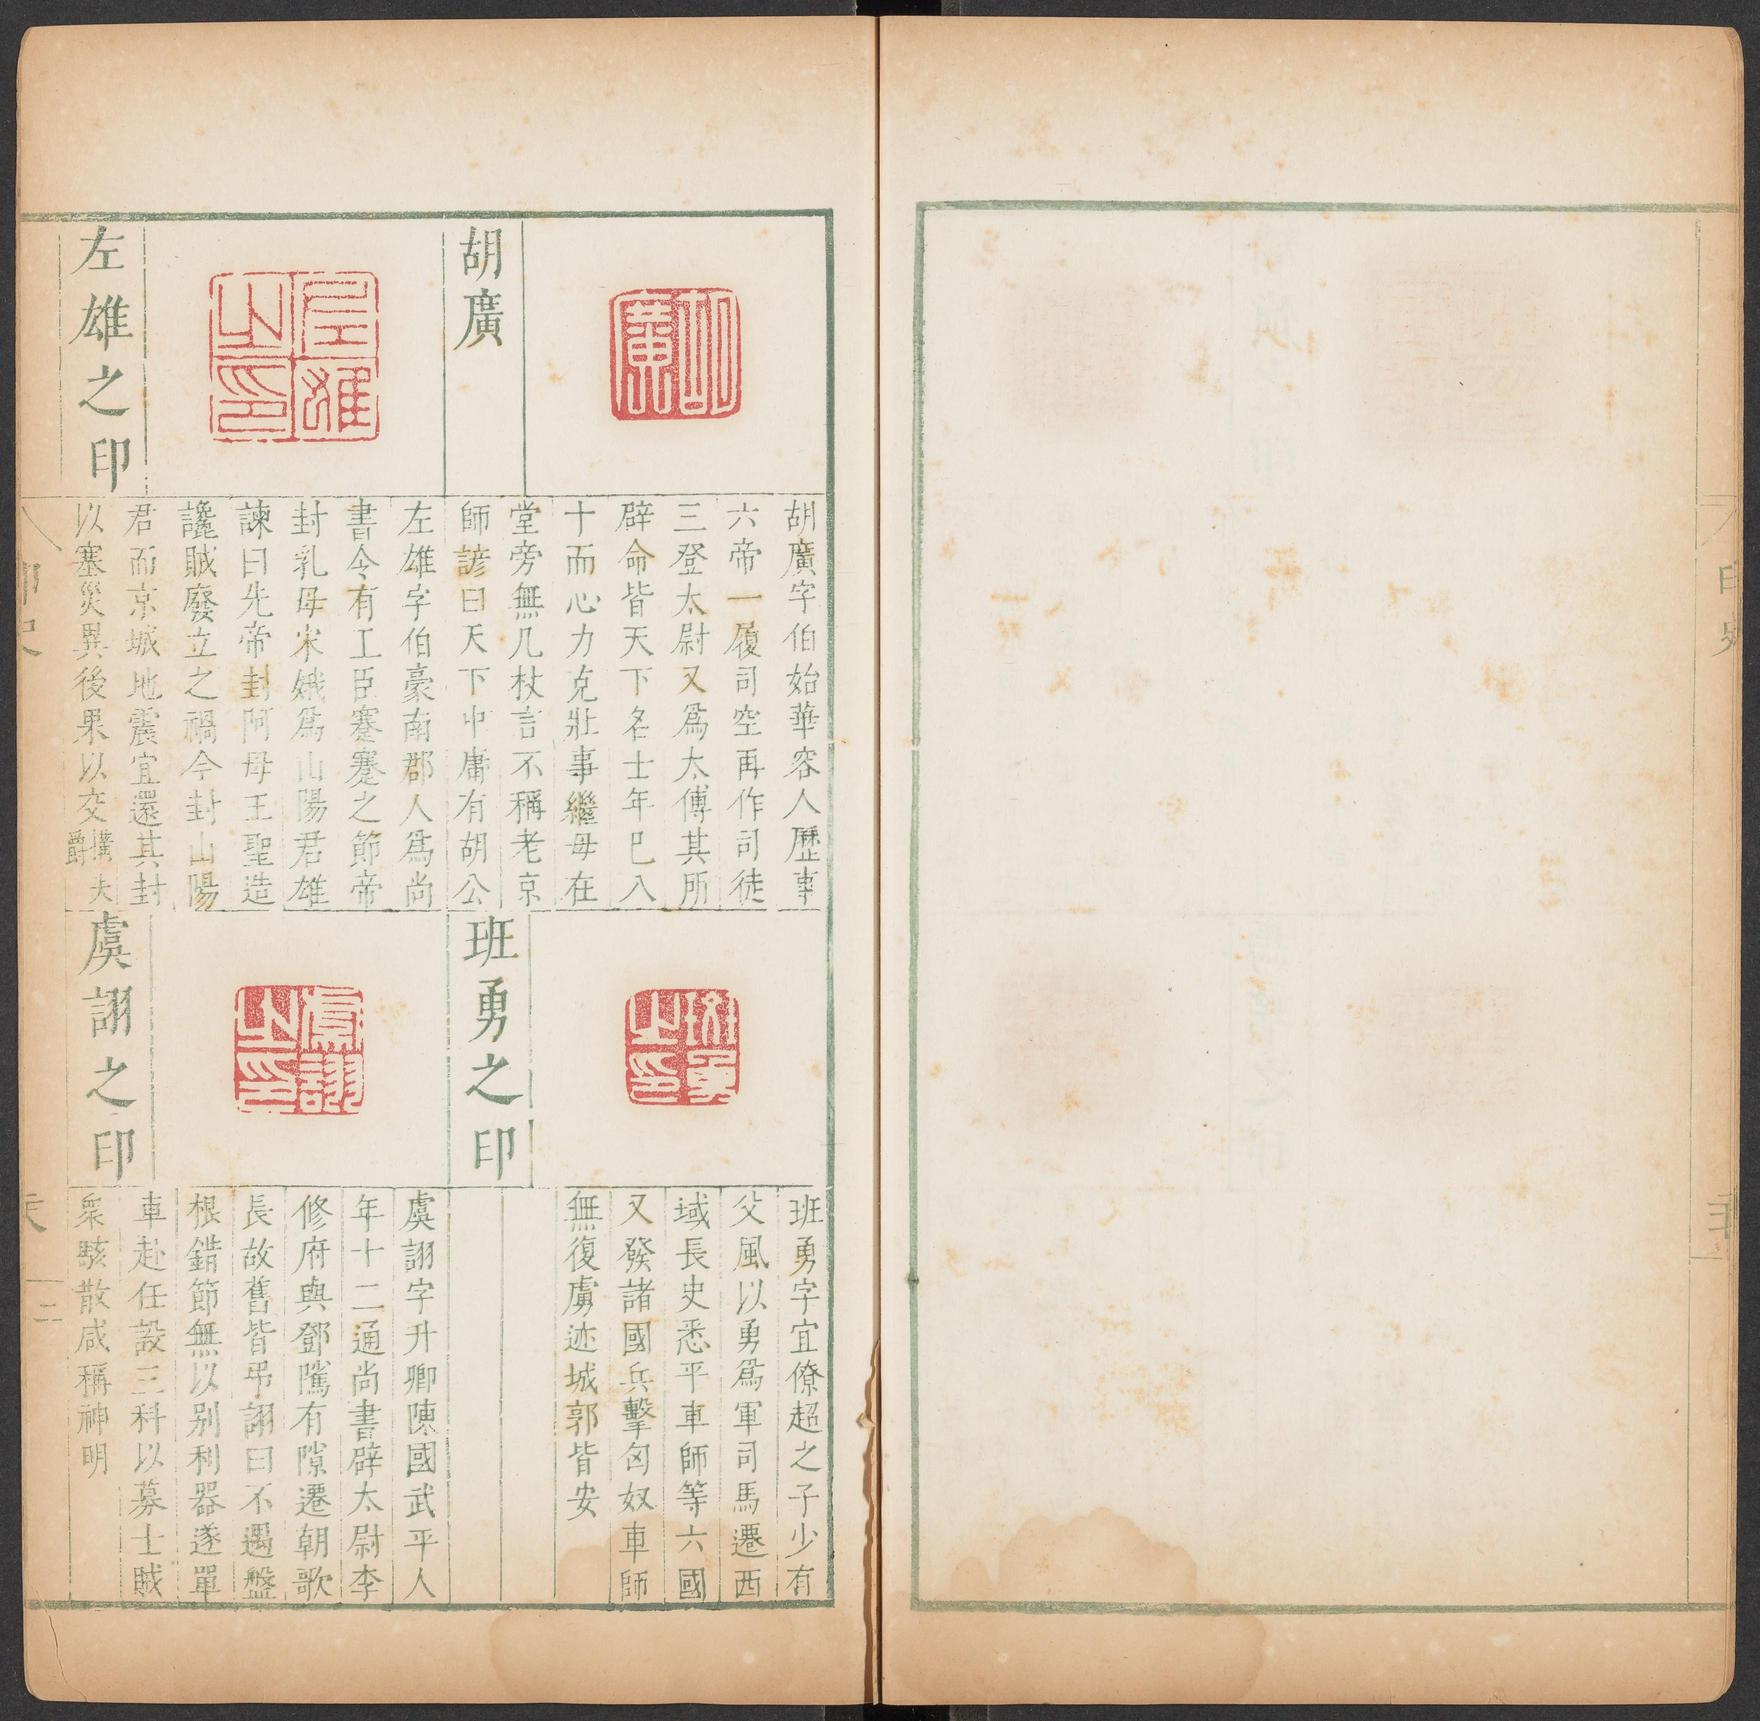 胡廣
胡廣字伯始華容人歷事
六帝一履司空再作司徒
三登太尉又爲太傅其所
辟命皆天下名士年巳八
十而心力克壯事繼母在
堂旁無几杖言不稱老京
師諺曰天下中庸有胡公
左雄之印
左雄字伯豪南郡人爲尚
書令有工臣蹇蹇之節帝
封乳母宋娥爲山陽君雄
諫曰先帝封阿母王聖造
讒賊廢立之禍今封山陽
君而京城地震宜還其封
以塞災異後果以交搆失爵
班勇之印
班勇字宜僚超之子少有
父風以勇爲軍司馬遷西
域長史悉平車師等六國
又發諸國兵擊匈奴車師
無復虜迹城郭皆安
虞詡之印
虞詡字升卿陳國武平人
年十二通尚書辟太尉李
修府與鄧騭有隙遷朝歌
長故舊皆弔詡曰不遇盤
根錯節無以别利器遂單
車赴任設三科以募士賊
衆駭散咸稱神明
印史
二